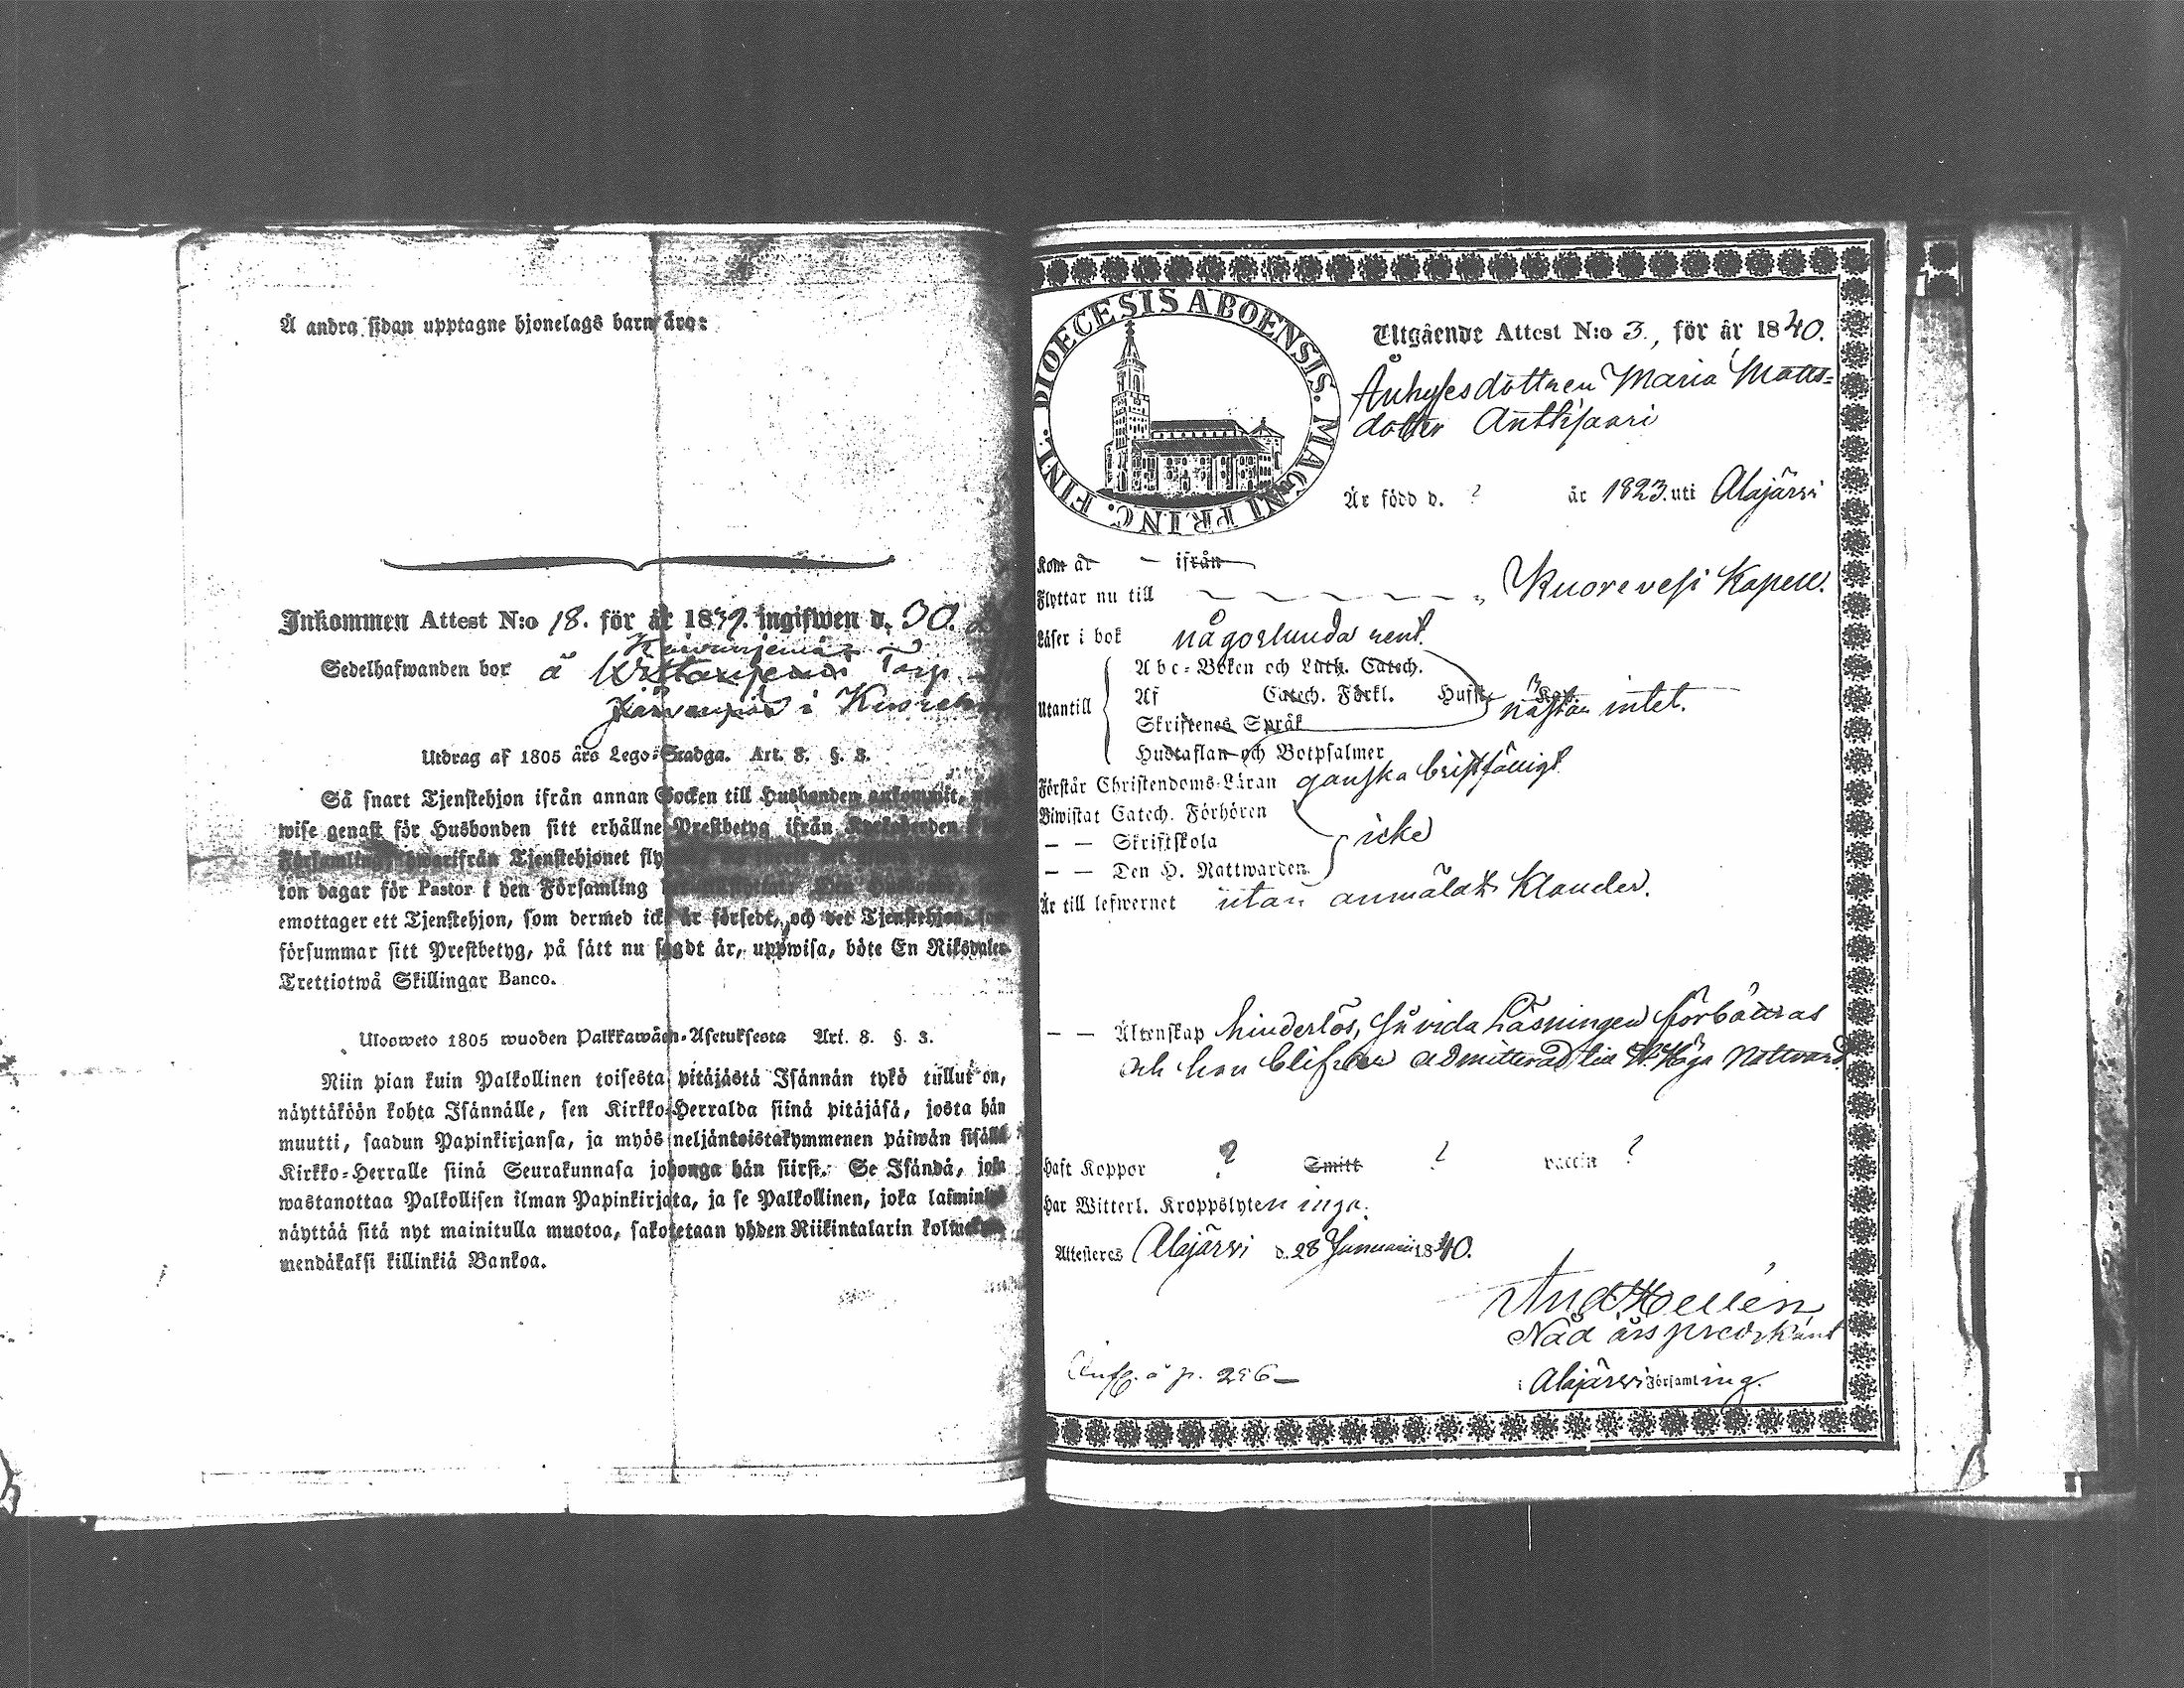 Å andra sidan upptagne hjonelags barn äro:
Inkommen Attest N:o 18. för år 1839. ingifwen d. 30.
Sedelhafwanden bor å Torp
i
Utdrag af 1805 års Lego-Stadga. Art. 8. §. 3.
Så snart Tjenstehjon ifrån annan Socken till Husbonden ankommit,
wise genast för Husbonden sitt erhållne Prestbetyg ifrån Kyrkoherden
Församling hwarifrån Tjenstehjonet
ton dagar för Pastor i den Församling
emottager ett Tjenstehjon, som dermed icke är försedt, och det Tjenstehjon,
försummar sitt Prestbetyg, på sätt nu sagdt är, uppwisa, böte En Riksdaler
Trettiotwå Skillingar Banco.
Ulosweto 1805 wuoden Palkkawäen-Asetuksesta Art. 8. §. 3.
Niin pian kuin Palkollinen toisesta pitäjästä Isännän tykö tullut on,
näyttäköön kohta Isännälle, sen Kirkko-Herralda siinä pitäjäsä, josta hän
muutti, saadun Papinkirjansa, ja myös neljäntoistakymmenen päiwän sisällä
Kirkko-Herralle siinä Seurakunnasa johonga hän siirsi. Se Isändä, joka
wastanottaa Palkollisen ilman Papinkirjata, ja se Palkollinen, joka laiminlyö
näyttää sitä nyt mainitulla muotoa, sakotetaan yhden Riikintalarin kolmekym-
mendäkaksi killinkiä Bankoa.
DIOECESIS ABOENSIS. MAGNI PRINC. FINL.
Utgående Attest N:o 3., för år 1840.
Inhysesdottren Maria Matts=
dotter Anttisaari
Är född d. ? år 1823. uti Alajärvi
Kom år – ifrån
Flyttar nu till Kuorevesi Kapell.
Läser i bok någorlunda rent.
Utantill
Abc-Boken och Luth. Catech.
Af Catech. Förkl. Hufst.
Skriftenes Språk
nästan intet.
Hustaflan och Botpsalmer
Förstår Christendoms-Läran ganska bristfälligt
Biwistat Catech. Förhören
— — Skriftskola icke
— — Den H. Nattwarden
Är till lefwernet utan anmäldt klander.
— — Äktenskap hinderlös, såvida Läsningen förbättras
och hon blifver admitterad till H. Höga Nattvard.
Haft Koppor ? Smitt ? vaccin ?
Har Witterl. Kroppslyten inga.
Attesteras Alajärvi d. 28 Januarii 1840.
And. Hellén
Nådårspredikant
i Alajärvi Församling.
p. 296